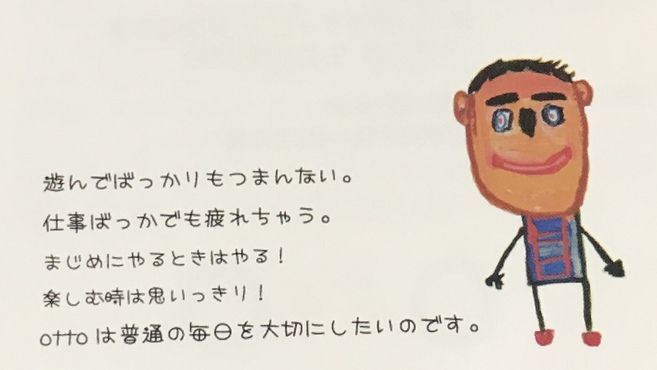 遊んでばっかりもつまんない。
仕事ばっかでも疲れちゃう。
まじめにやるときはやる！
楽しむ時は思いっきり！
ottoは普通の毎日を大切にしたいのです。